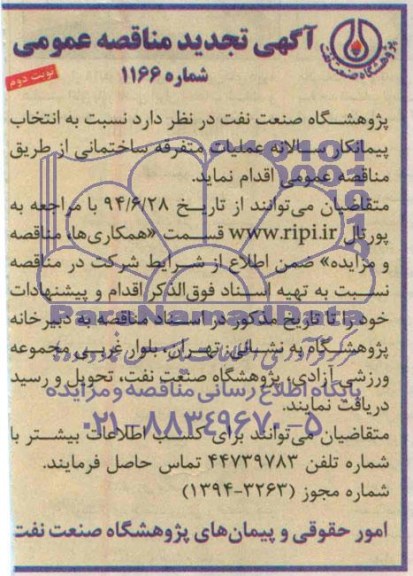 پژوهشگاه صنعت نفت
آگهی تجدید مناقصه عمومی
شماره ۱۱۶۶
نوبت دوم
پژوهشگاه صنعت نفت در نظر دارد نسبت به انتخاب
پیمانکار سالانه عملیات متفرقه ساختمانی از طریق
مناقصه عمومی اقدام نماید.
متقاضیان می‌توانند از تاریخ ۹۴/۶/۲۸ با مراجعه به
پورتال www.ripi.ir قسمت «همکاری‌ها، مناقصه
و مزایده» ضمن اطلاع از شرایط شرکت در مناقصه
نسبت به تهیه اسناد فوق‌الذکر اقدام و پیشنهادات
خود را تا تاریخ مذکور در اسناد مناقصه به دبیرخانه
پژوهشگاه به نشانی: تهران، بلوار غربی مجموعه
ورزشی آزادی، پژوهشگاه صنعت نفت، تحویل و رسید
دریافت نمایند.
متقاضیان می‌توانند برای کسب اطلاعات بیشتر با
شماره تلفن ۴۴۷۳۹۷۸۳ تماس حاصل فرمایند.
شماره مجوز (۳۲۶۳-۱۳۹۴)
امور حقوقی و پیمان‌های پژوهشگاه صنعت نفت
ParsNamadData
پایگاه اطلاع رسانی مناقصه و مزایده
۰۲۱-۸۸۳۴۹۶۷۰-۵